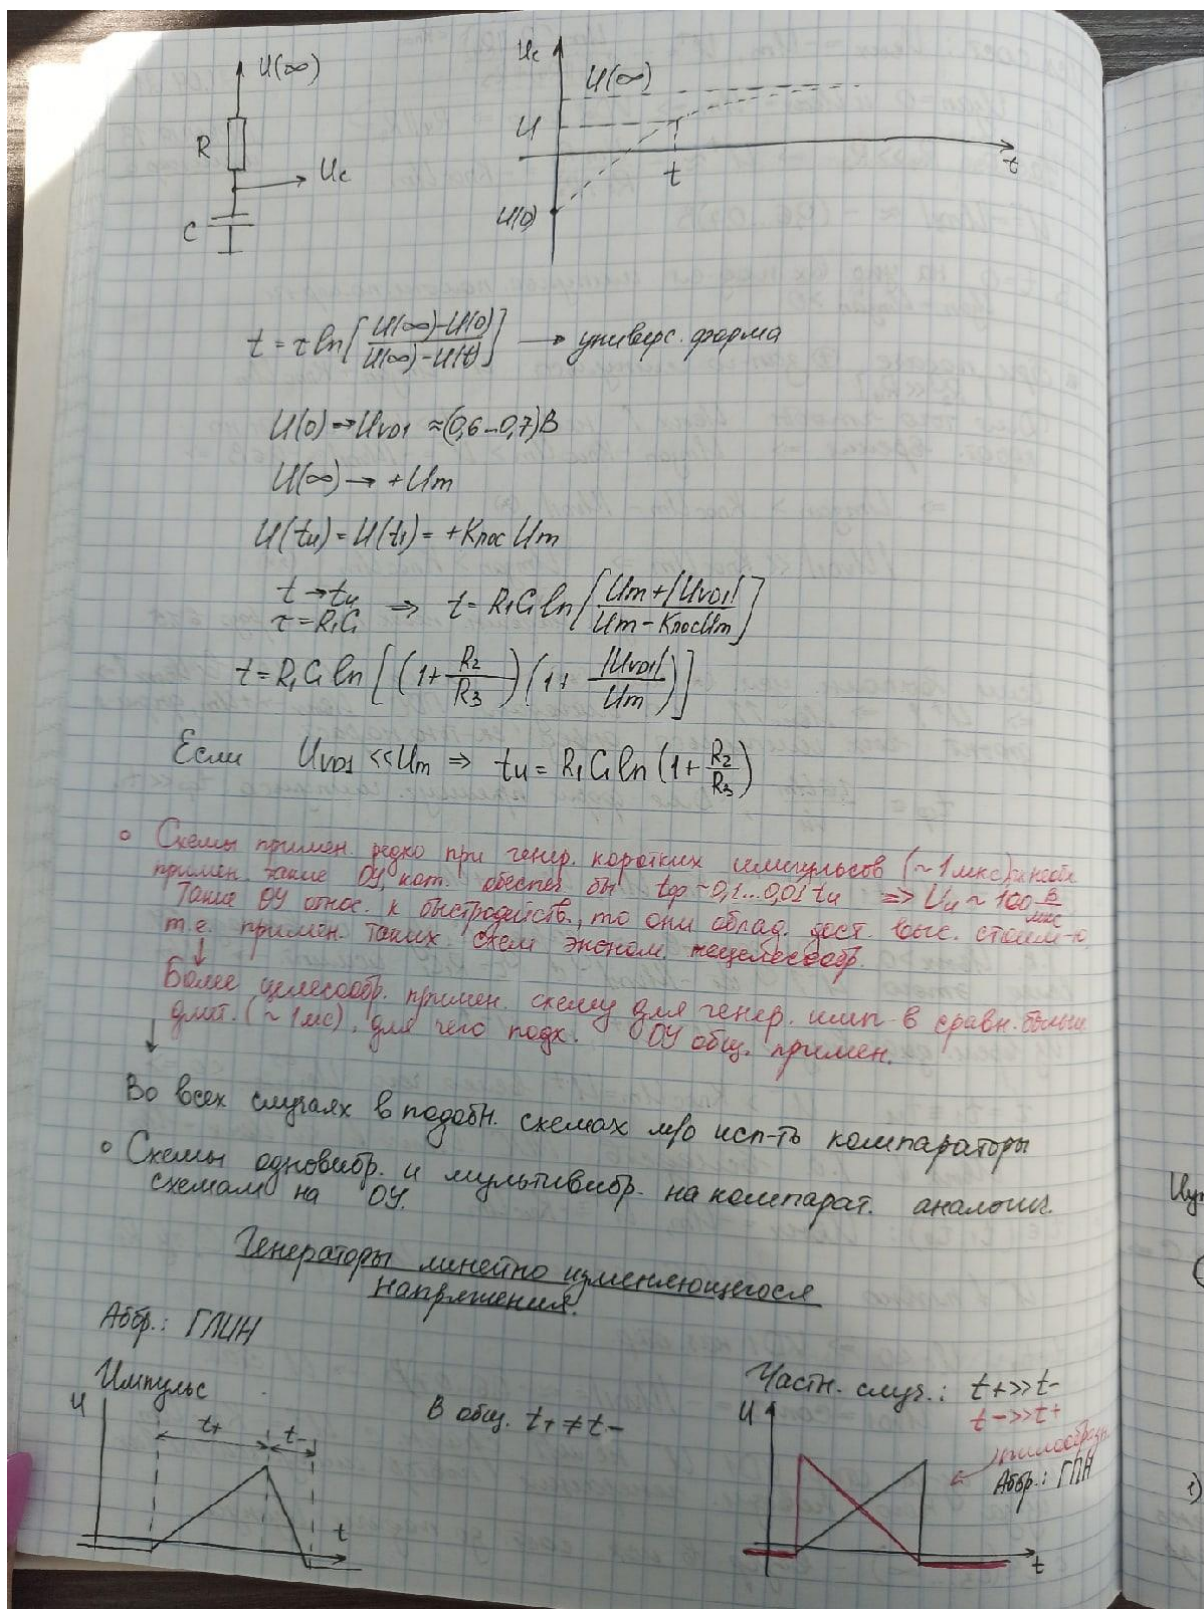 U(∞)
R
Uc
C
Uc
U(∞)
U
t
t
U(0)
t = τ ln[(U(∞)-U(0))/(U(∞)-U(t))] → универс. форма
U(0) → Uvд1 ≈ (0,6-0,7)В
U(∞) → +Um
U(tи) = U(t1) = +Kпос Um
t → tи
τ = R1C1 ⇒ t = R1C1 ln[(Um+|Uvд1|)/(Um-KпосUm)]
t = R1C1 ln[(1+R2/R3)(1+|Uvд1|/Um)]
Если Uvд1 << Um ⇒ tи = R1C1 ln(1+R2/R3)
∘ Схемы примен. редко при генер. коротких импульсов (~1мкс),
примен. такие ОУ, кот. обеспеч. бы tф ~ 0,1...0,01 tи ⇒ Vи ~ 100 В/мкс
Такие ОУ относ. к быстродейств., то они облад. дост. выс. стоим-ю
т.е. примен. таких схем эконом. нецелесообр.
Более целесообр. примен. схему для генер. имп. в сравн. больш.
длит. (~1мс), для чего подх. ОУ общ. примен.
Во всех случаях в подобн. схемах м/о исп-ть компараторы
∘ Схемы одновибр. и мультивибр. на компарат. аналогич.
схемам на ОУ.
Генераторы линейно изменяющегося
напряжения.
Аббр.: ГЛИН
Импульс
U
t+
t-
t
В общ. t+ ≠ t-
Частн. случ.: t+ >> t-
t- >> t+
U
пилообразн.
Аббр.: ГПН
t
1)